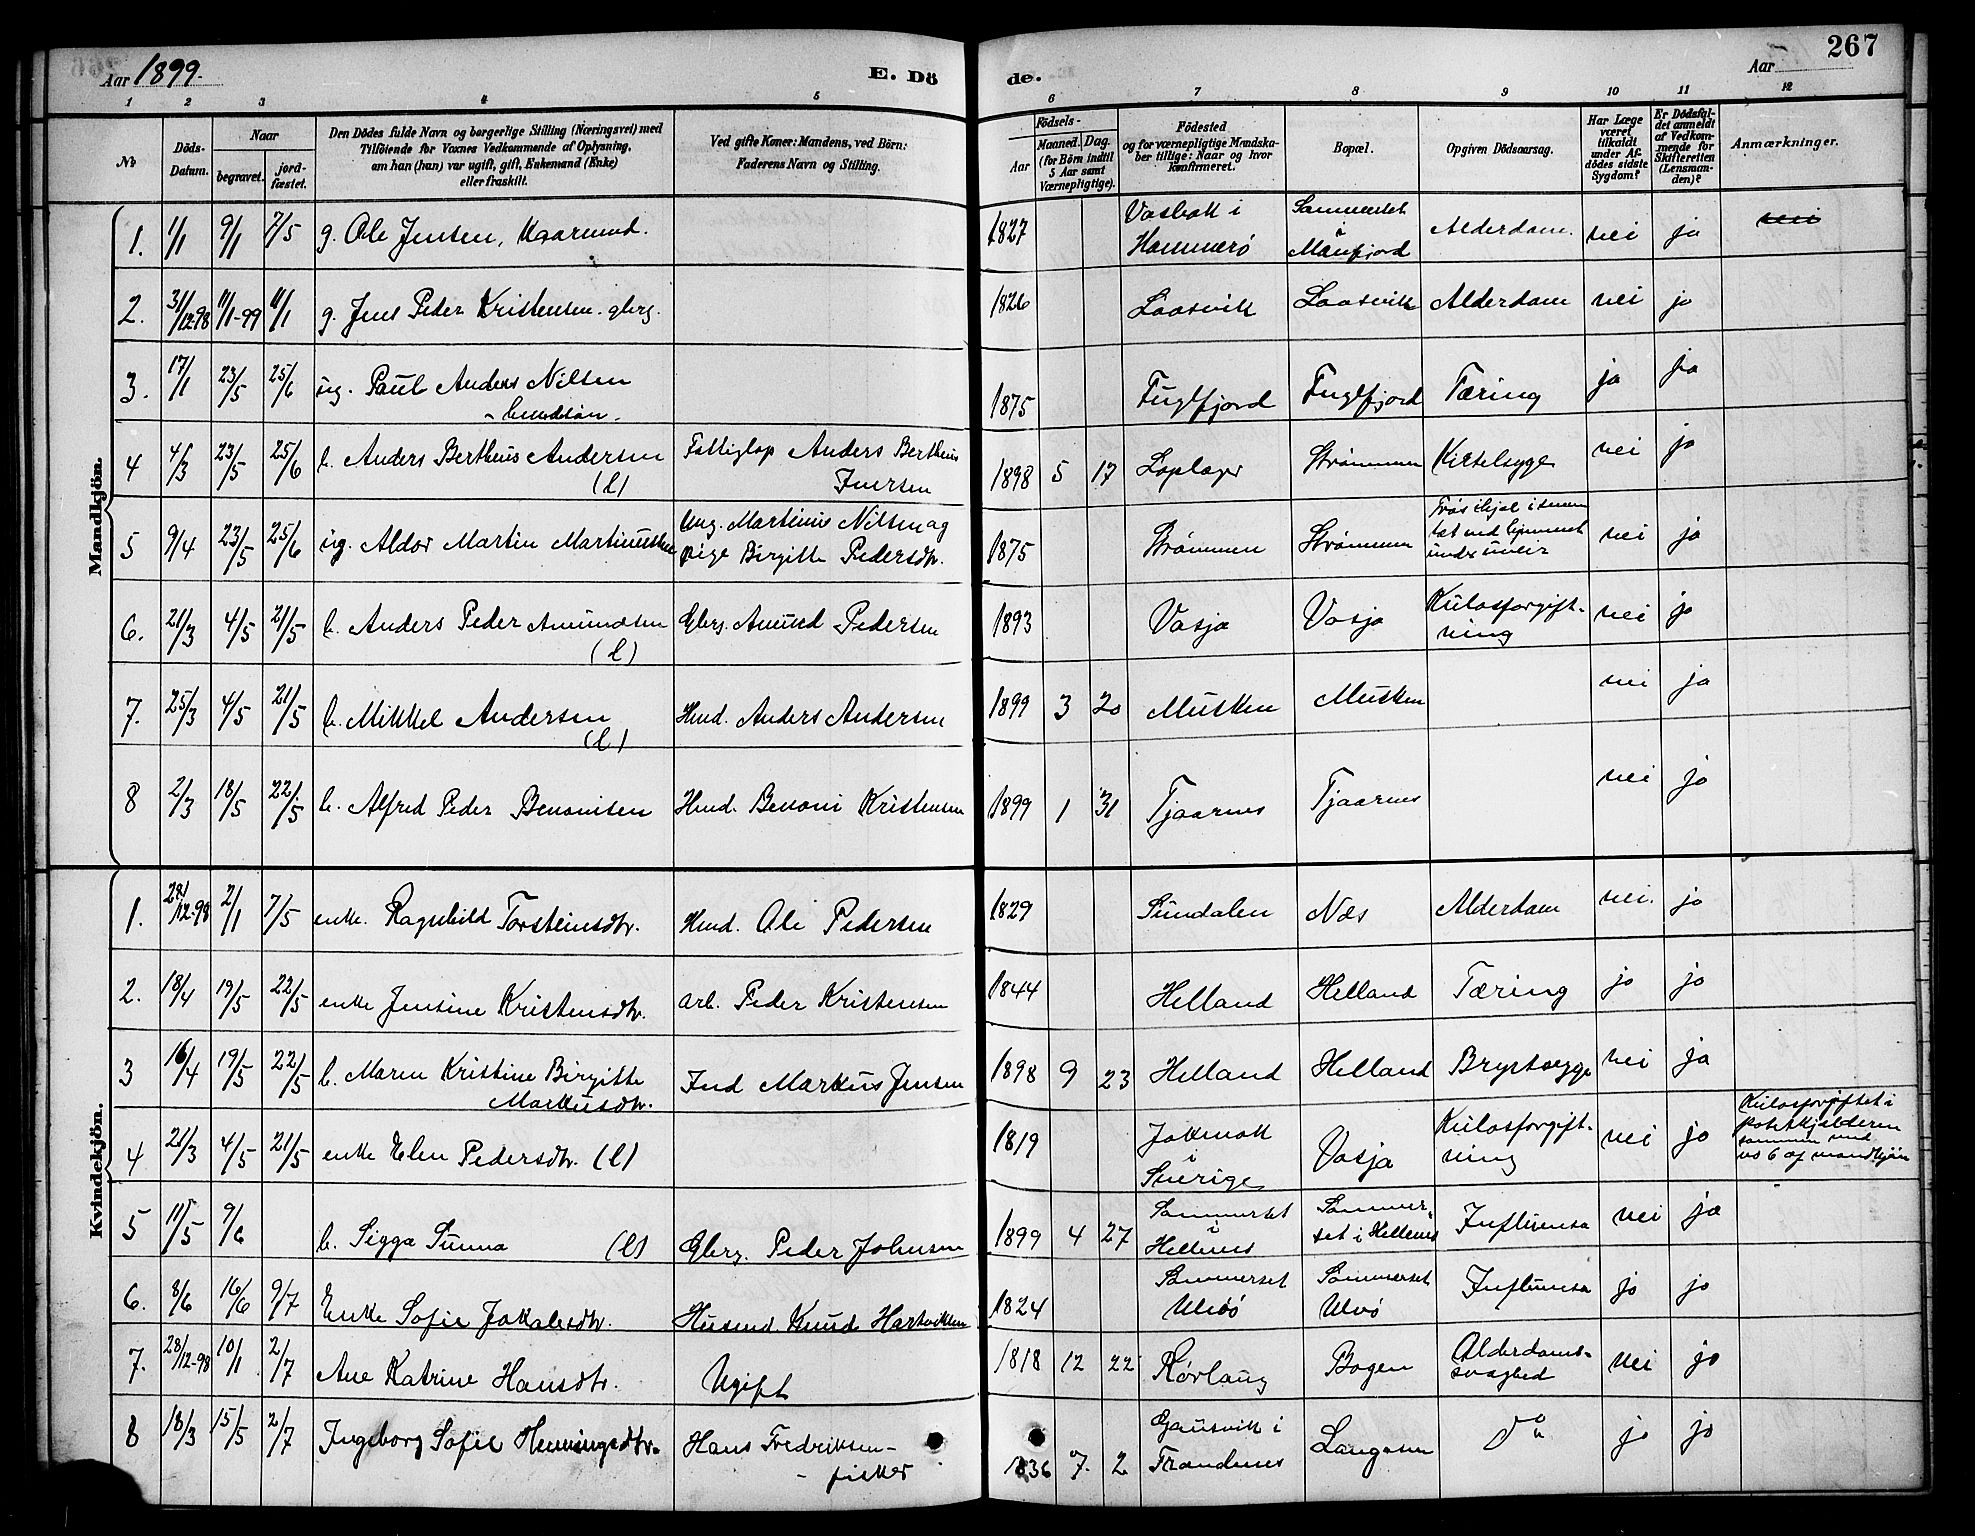 Aar 1899.
E. Dö
de.
Aar
267
1 2 3 4 5 6 7 8 9 10 11 12
No
Döds-Datum.
Naar
begravet.
jord-fæstet.
Den Dödes fulde Navn og borgerlige Stilling (Næringsvei) med
Tilföiende for Voxnes Vedkommende af Oplysning,
om han (hun) var ugift, gift, Enkemand (Enke)
eller fraskilt.
Ved gifte Koner: Mandens, ved Börn:
Faderens Navn og Stilling.
Födsels-
Aar
Maaned. Dag.
(for Børn indtil
5 Aar samt
Værnepligtige).
Födested
og for værnepligtige Mandska-
ber tillige: Naar og hvor
konfirmeret.
Bopæl.
Opgiven Dödsaarsag.
Har Læge
været
tilkaldt
under Af-
dödes sidste
Sygdom?
Er Dödsfal-
det anmeldt
af Vedkom-
mende for
Skifteretten
(Lensman-
den)?
Anmærkninger.
Mandkjön.
1. 1/1 9/1 7/5 g. Ole Jensen, Kaarmand. 1827 Vasbak i Hammerø Sammerset Månfjord Alderdom. nei ja nei
2. 31/12-98 11/1-99 11/1 g. Jens Peder Kristensen. gbrg. 1826 Laasvik Laasvik Alderdom nei ja
3. 17/1 23/5 25/6 ug. Paul Anders Nilsen 1875 Fuglfjord Fuglfjord Tæring ja ja
4 4/3 23/5 25/6 b. Anders Bertheus Andersen (l) Fattiglap Anders Bertheus Iversen 1898 5 17 Loplager Strømmen Kirtelsyge nei ja
5 9/4 23/5 25/6 ug. Aldor Martin Martinussen Ung. Martinus Nilsen og pige Birgitte Pedersdtr. 1875 Strømmen Strømmen Frøs ihjel i under uveir nei ja
6. 21/3 4/5 21/5 b. Anders Peder Amundsen (l) Gbrg. Amund Pedersen 1893 Vasja Vasja Kulosforgift-
ning nei ja
7. 25/3 4/5 21/5 b. Mikkel Andersen (l) Hmd. Anders Andersen 1899 3 20 Musken Musken nei ja
8 2/3 18/5 22/5 b. Alfred Peder Benonisen Hmd. Benoni Kristensen 1899 1 31 Tjaarnes Tjaarnes nei ja
Kvindekjön.
1. 28/12-98 2/1 7/5 enke. Ragnhild Torsteinsdtr. Hmd. Ole Pedersen 1829 Sundalen Næs Alderdom nei. ja
2. 18/4 19/5 22/5 enke Jensine Kristensdtr. arb. Peder Kristensen 1844 Helland Helland Tæring ja ja
3 16/4 19/5 22/5 b. Maren Kristine Birgitte Markusdtr. Ind Markus Jensen 1898 9 23 Helland Helland Brystsyge nei ja
4 21/3 4/5 21/5 enke Elen Pedersdtr. (l) 1819 Jokmok i Sverige Vasja Kulosforgift-
ning nei ja Kulosforgiftet i
potetkjælderen
sammen med
no 6 af mandkjøn
5 11/5 9/6 b. Sigga Sunna (l) Gbrg. Peder Johnsen 1899 4 27 Sammerset i Hellemo Sammer-
set i Hellemo Influensa nei ja
6. 8/6 16/6 9/7 Enke Sofie Jakobsdtr. Husmd. Knud Hartviksen 1824 Sammerset Ulvø Sammerset Ulvø Influensa ja ja
7. 28/12-98 10/1 2/7 Ane Katrine Hansdtr. Ugift 1818 12 22 Rørlaug Bogen Alderdoms-
svaghed nei ja
8 18/3 15/5 2/7 Ingeborg Sofie Henningsdtr. Hans Fredriksen -
- fisker 1836 7. 2 Gausvik i Trondenes Langosen do ja ja